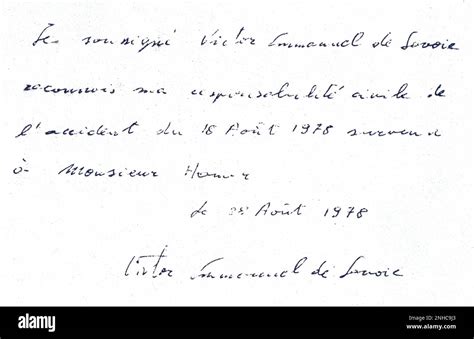 Je soussigné Victor Emmanuel de Savoie
reconnois ma responsabilité civile de
l'accident du 18 Août 1978 survenu
à Monsieur Hamer
le 28 Août 1978
Victor Emmanuel de Savoie
alamy
Image ID: 2NHC9J3
www.alamy.com